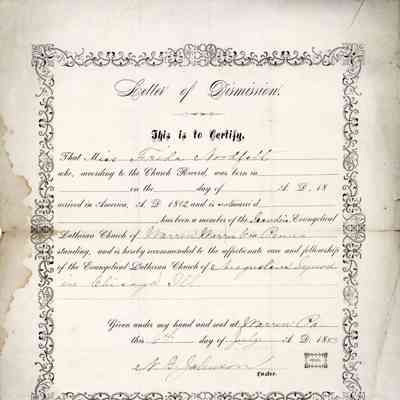 Letter of Dismission.
This is to Certify,
That Miss Frida
who, according to the Church Record, was born in
on the day of A. D. 18
arrived in America, A. D. 18 and is
has been a member of the Evangelical
Lutheran Church of Warren
standing, and is hereby recommended to the affectionate care and fellowship
of the Evangelical Lutheran Church of
Given under my hand and seal at Warren Pa
this day of July A. D. 18
Johnson
Pastor.